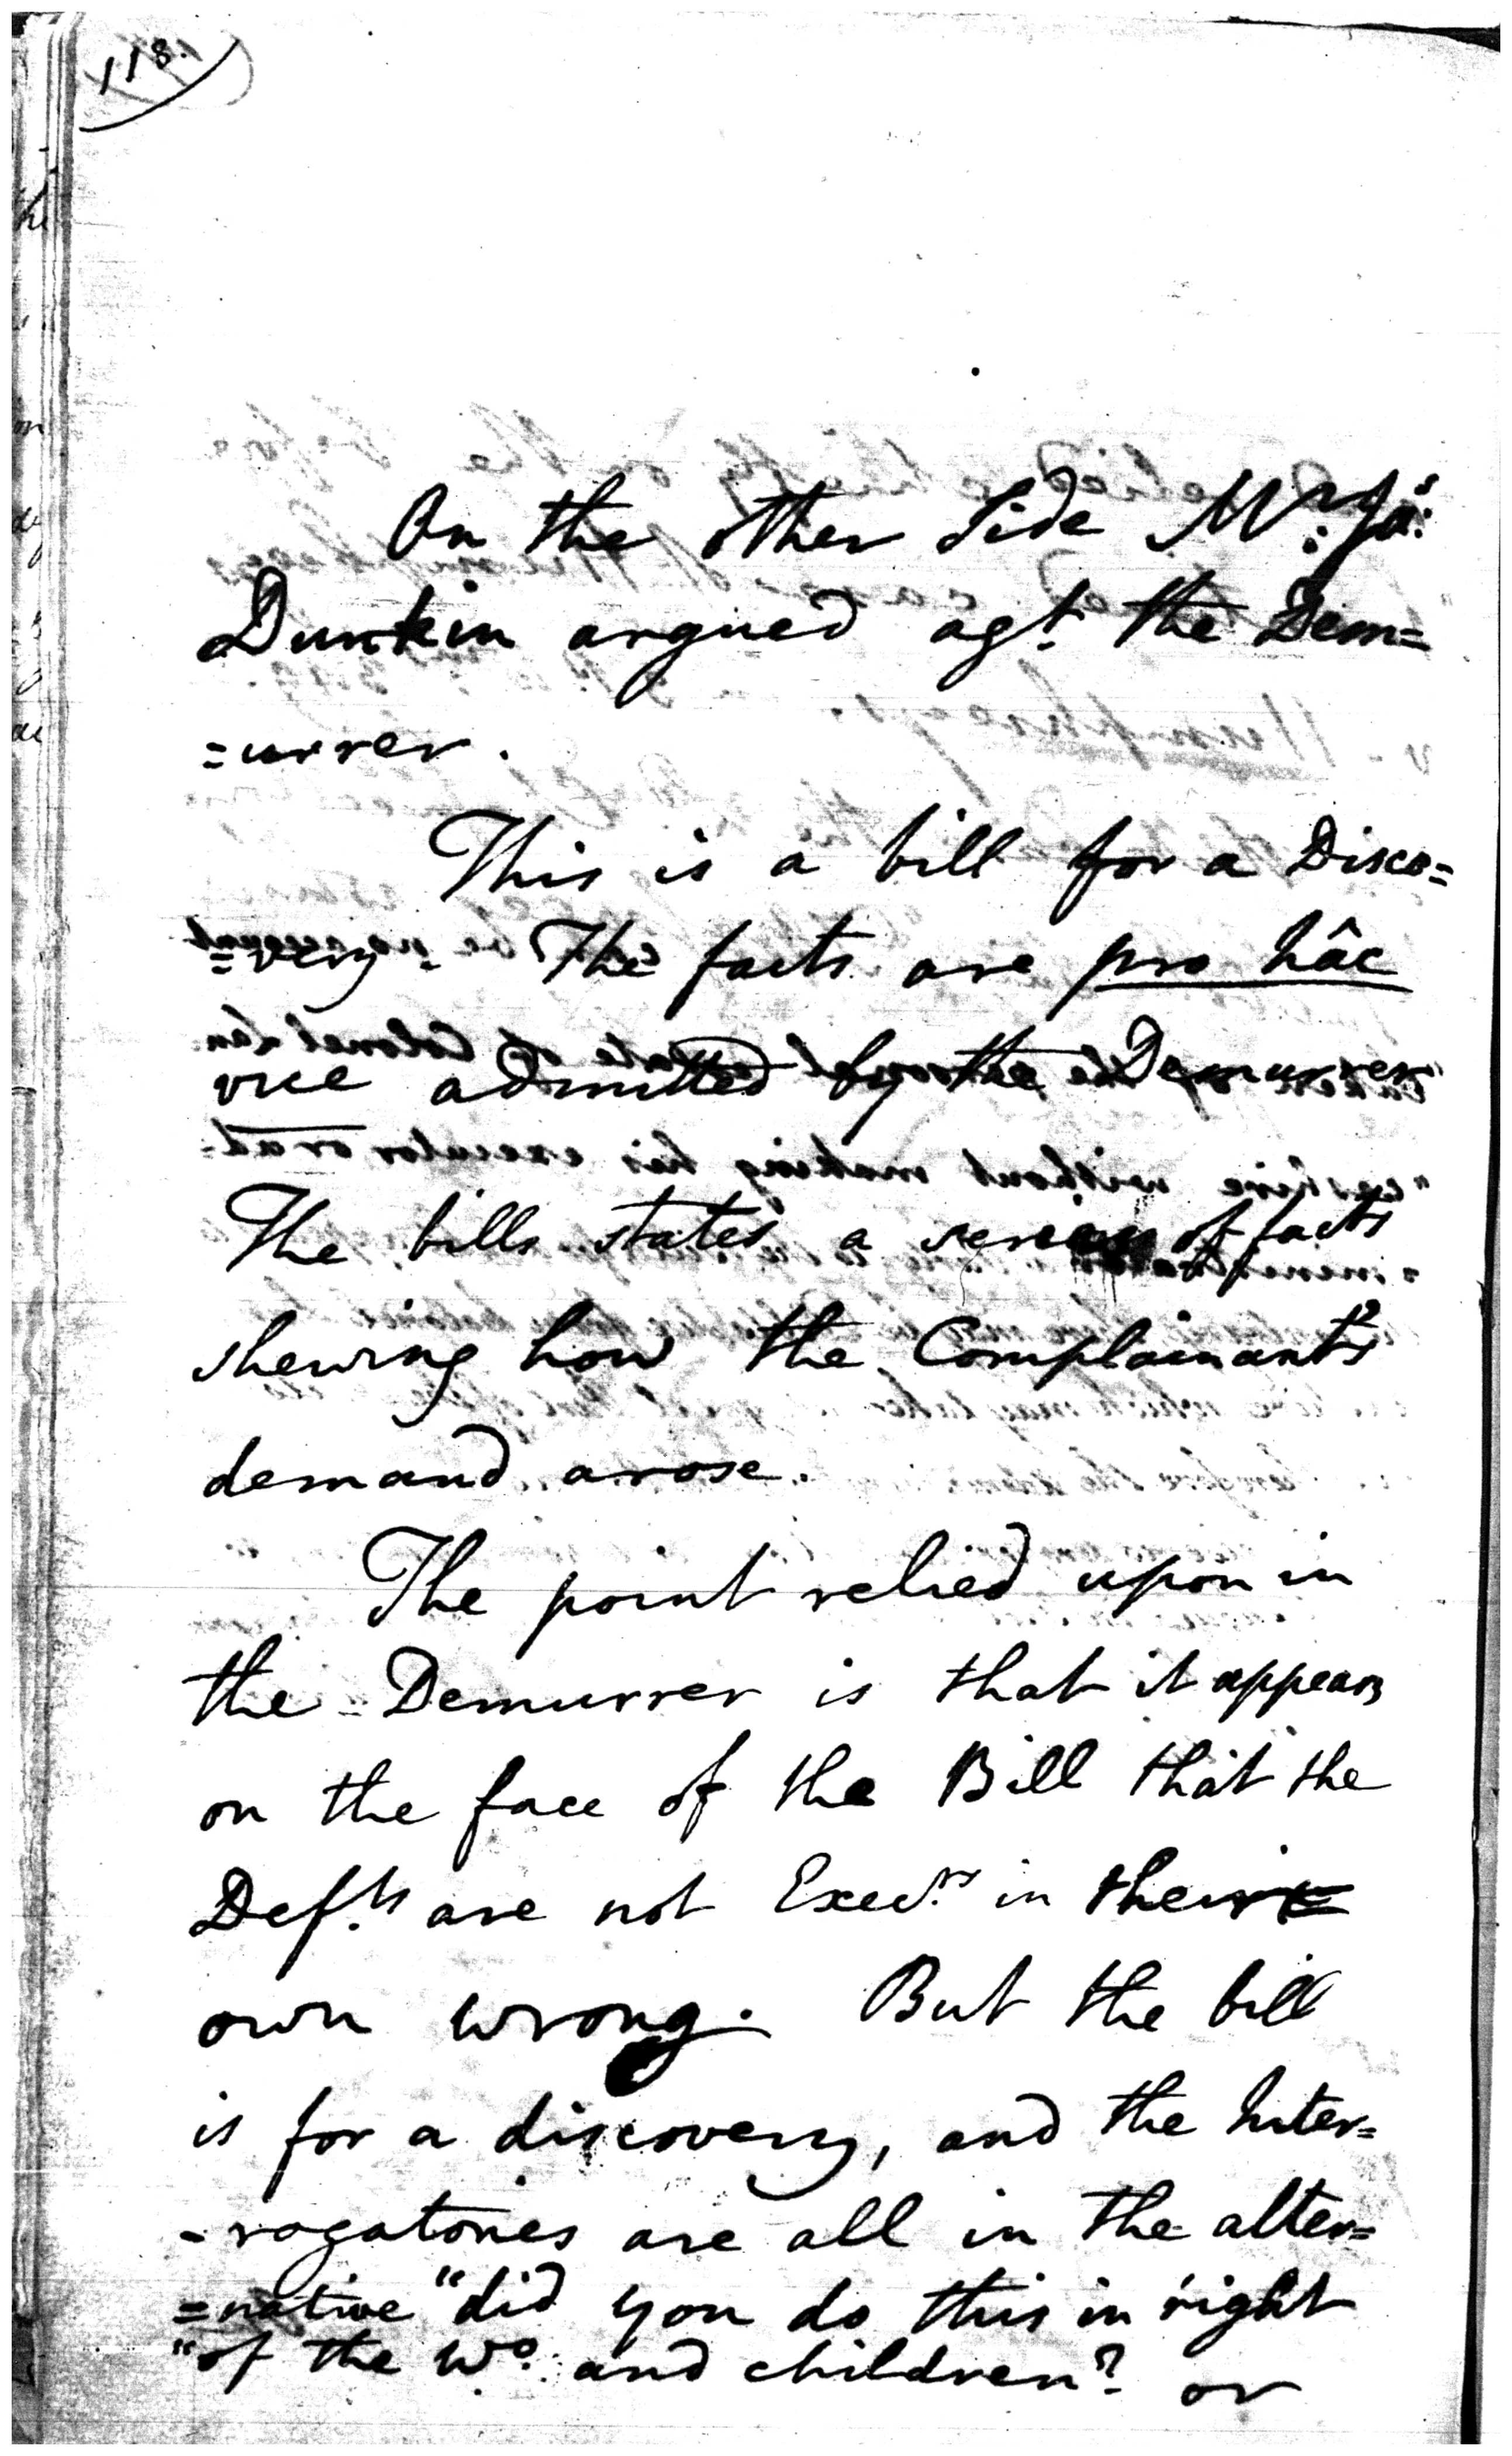 118.
On the other Side Mr. Jas:
Dunkin argued agt. the Dem=
=urrer.
This is a bill for a Disco=
=very. The facts are pro hâc
vice admitted by the Demurrer
The bills states a series of facts
shewing how the Complainants
demand arose.
The point relied upon in
the Demurrer is that it appears
on the face of the Bill that the
Defts. are not Execrs. in their
own wrong. But the bill
is for a discovery, and the Inter=
=rogatories are all in the alter=
=native "did you do this in right
"of the Wo. and children? or